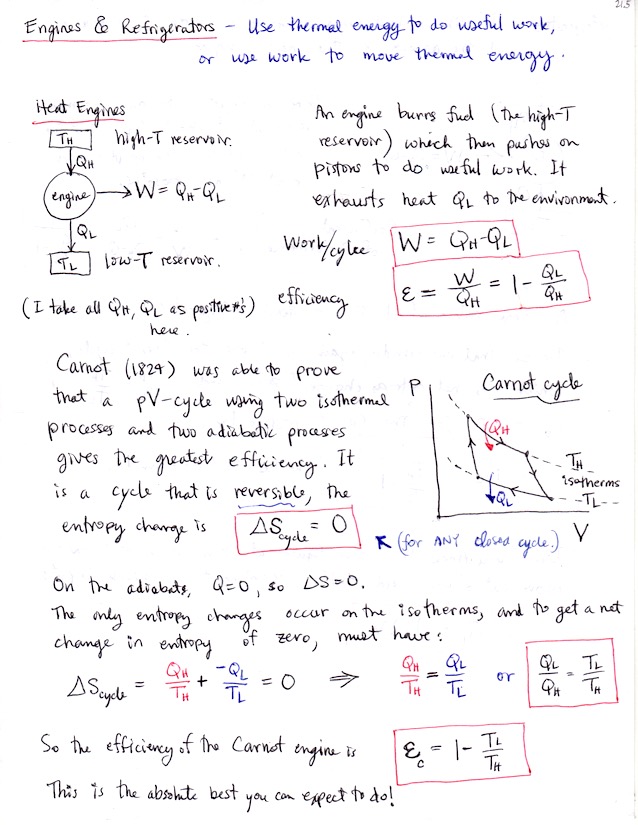 215
Engines & Refrigerators - Use thermal energy to do useful work,
or use work to move thermal energy.
Heat Engines
T_H high-T reservoir.
Q_H
engine → W = Q_H - Q_L
Q_L
T_L low-T reservoir.
(I take all Q_H, Q_L as positive #'s)
here.
An engine burns fuel (the high-T
reservoir) which then pushes on
pistons to do useful work. It
exhausts heat Q_L to the environment.
Work/cylce W = Q_H - Q_L
efficiency ε = W/Q_H = 1 - Q_L/Q_H
Carnot (1824) was able to prove
that a pV-cycle using two isothermal
processes and two adiabatic proceses
gives the greatest efficiency. It
is a cycle that is reversible, the
entropy change is ΔS_cycle = 0
(for ANY closed cycle.)
P Carnot cycle
Q_H
T_H
isotherms
Q_L T_L
V
On the adiabats, Q=0, so ΔS=0.
The only entropy changes occur on the isotherms, and to get a net
change in entropy of zero, must have:
ΔS_cycle = Q_H/T_H + -Q_L/T_L = 0 ⇒ Q_H/T_H = Q_L/T_L or Q_L/Q_H = T_L/T_H
So the efficiency of the Carnot engine is ε_c = 1 - T_L/T_H
This is the absolute best you can expect to do!